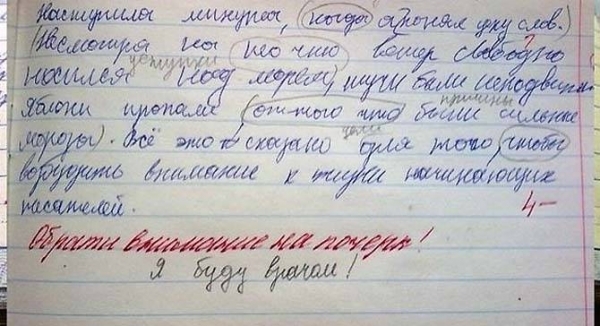 наступила минута, (когда я понял цену слов.)
(Несмотря на то что) ветер свободно
уступки
носился над морем, тучи были неподвижн
причины
Яблони пропали, (оттого что были сильные
цели
морозы). Всё это сказано для того, чтобы
возбудить внимание к жизни начинающих
писателей.
4-
Обрати внимание на почерк!
Я буду врачом!